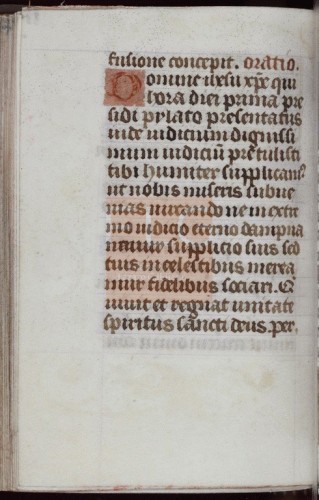 fusione concepit. oratio.
Domine ihesu xpe qui
hora diei prima pre
sidi pylato presentatus
iude iudicium dignissi
mum iudiciu pretulisti
tibi humiter supplicans
ut nobis miseris subue
nias iuuando ne in extre
mo iudicio eterno dampna
ntur supplicio sius sed
tuis in celestibus merea
mur fidelibus sociari. Qi
uiuit et regnat unitate
spiritus sancti deus. per.